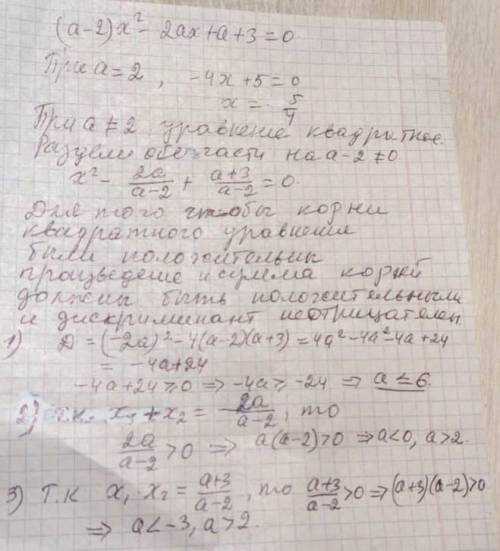 (a-2)x² - 2ax + a + 3 = 0
При a = 2, -4x + 5 = 0
x = 5/4
При a ≠ 2 уравнение квадратное.
Раздели обе части на a-2 ≠ 0
x² - 2a/(a-2) + (a+3)/(a-2) = 0
Для того чтобы корни
квадратного уравнения
были положительны
произведение и сумма корней
должны быть положительными
и дискриминант неотрицателен
1) D = (-2a)² - 4(a-2)(a+3) = 4a² - 4a² - 4a + 24
= -4a + 24
-4a + 24 ≥ 0 ⇒ -4a ≥ -24 ⇒ a ≤ 6.
2) т.к. x₁ + x₂ = 2a/(a-2), то
2a/(a-2) > 0 ⇒ a(a-2) > 0 ⇒ a < 0, a > 2.
3) Т.к x₁ x₂ = (a+3)/(a-2), то (a+3)/(a-2) > 0 ⇒ (a+3)(a-2) > 0
⇒ a < -3, a > 2.